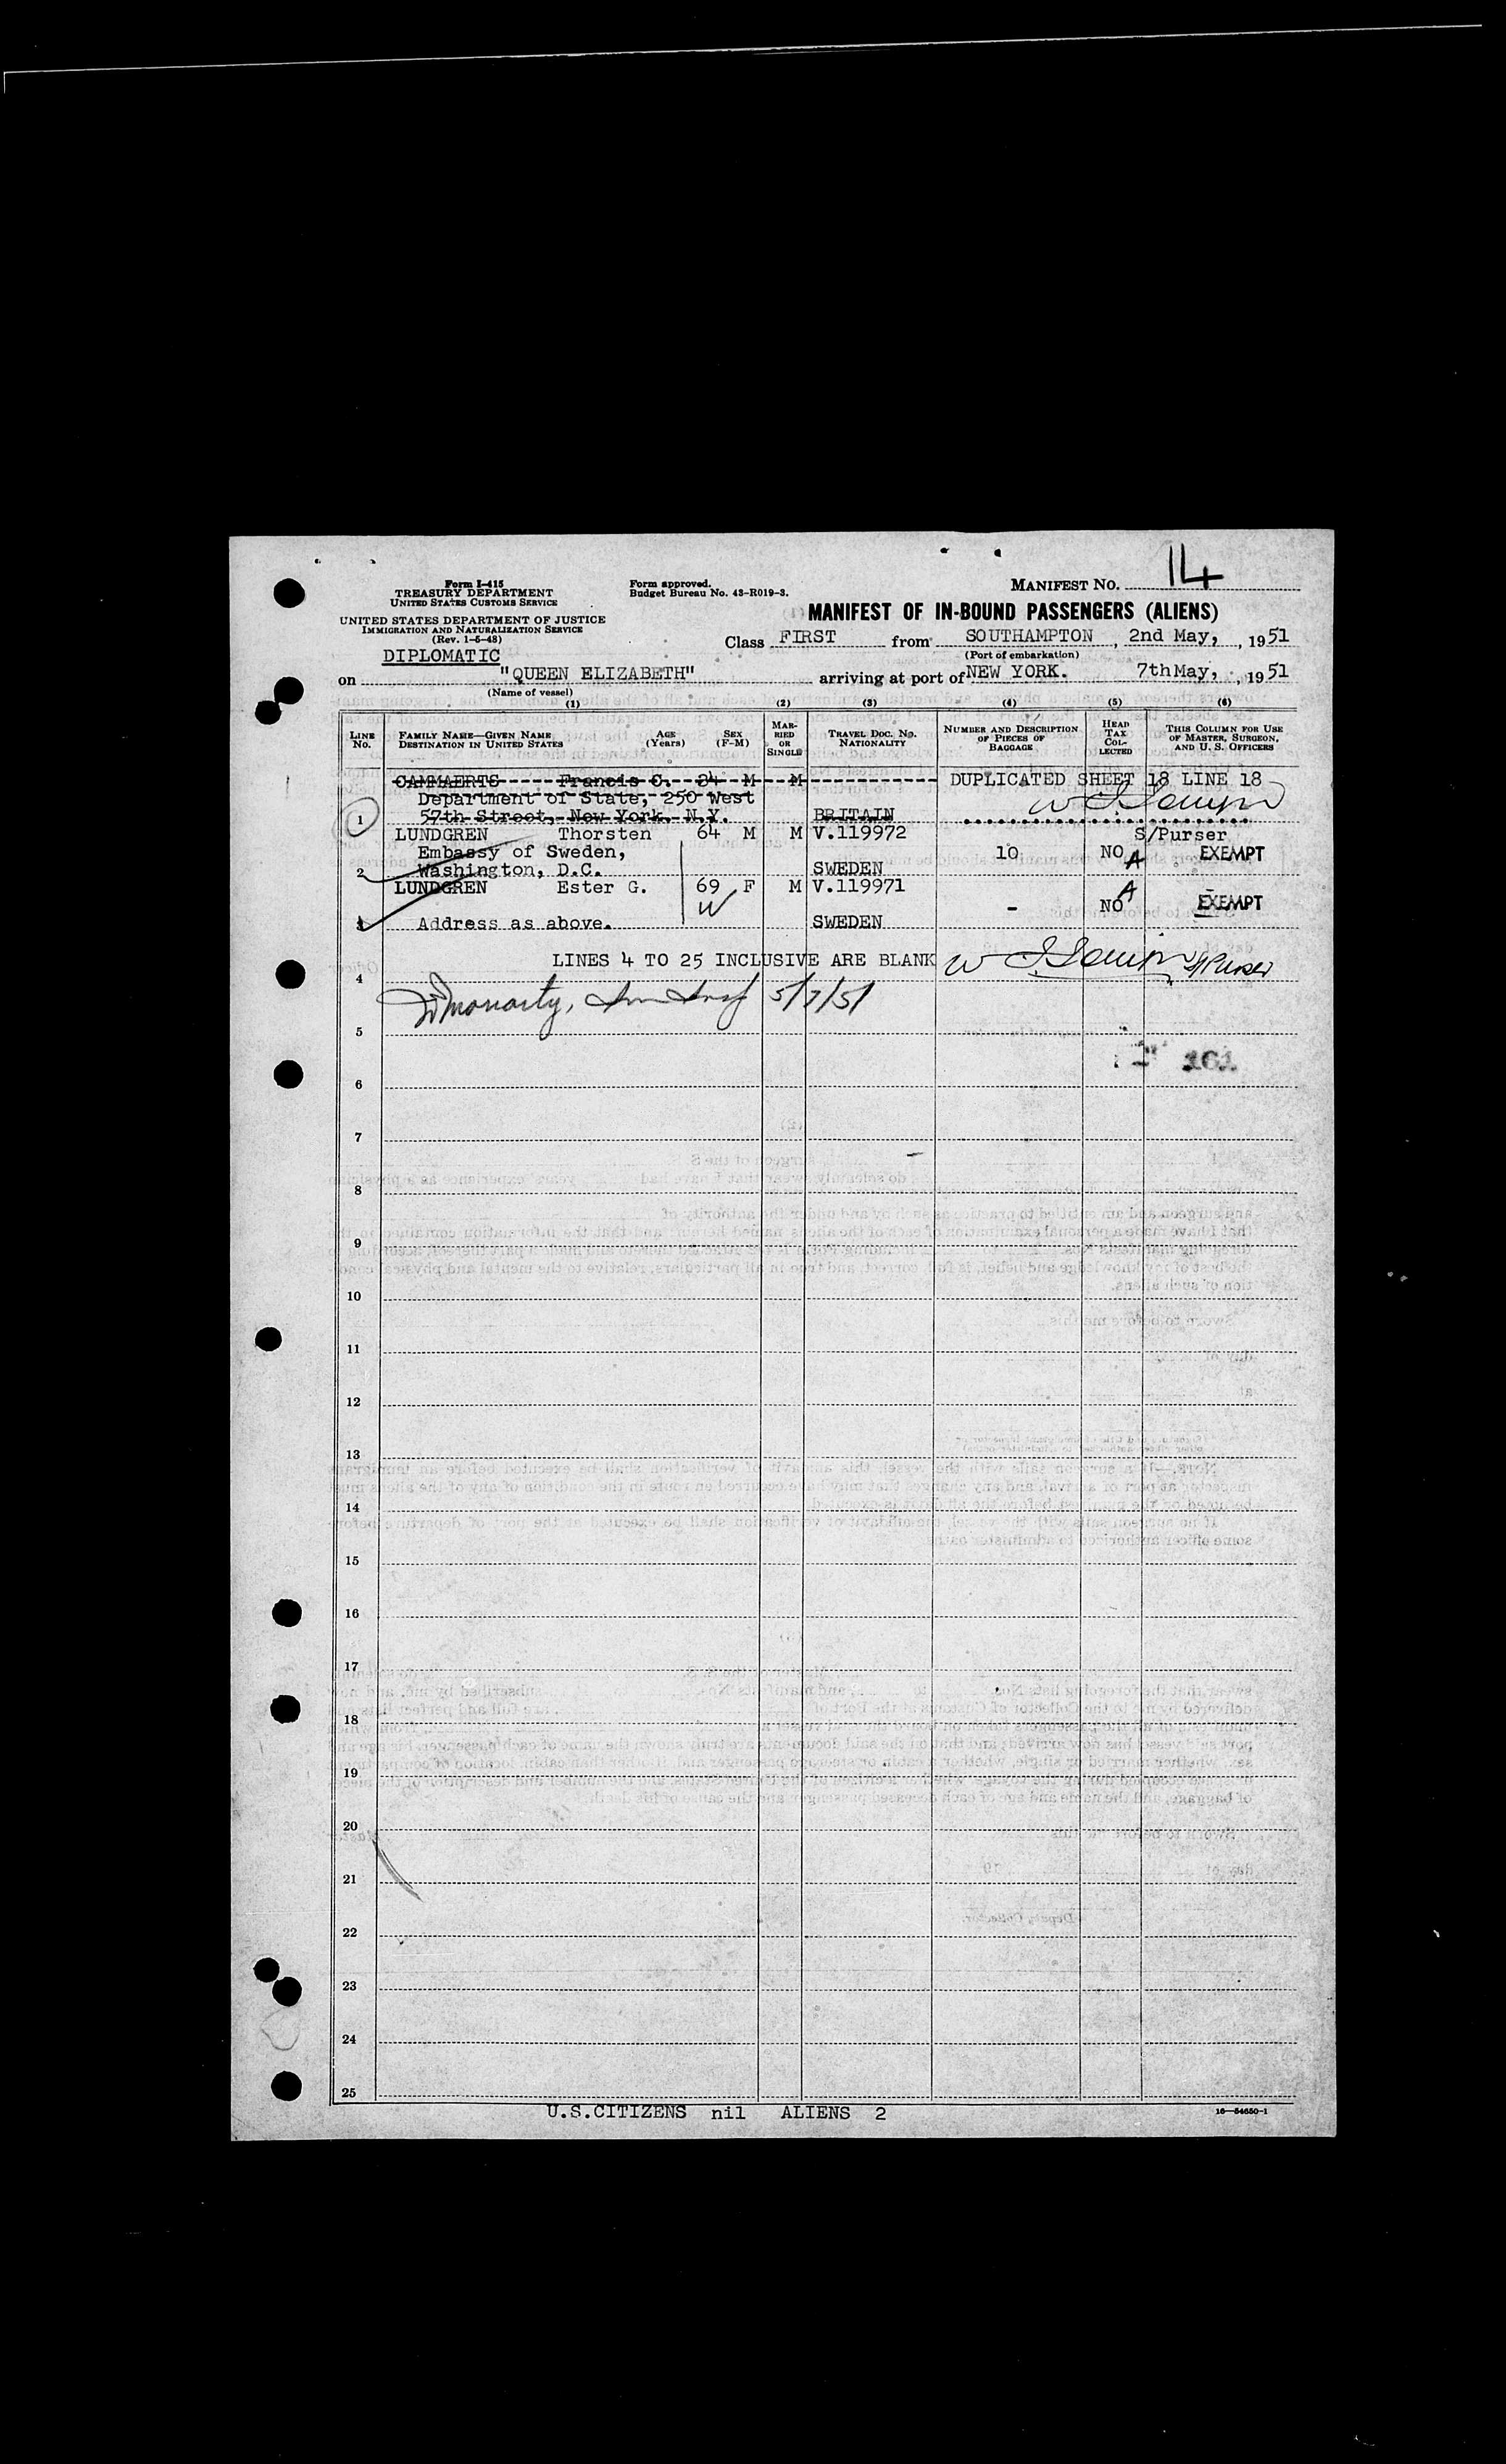 Form I-415
TREASURY DEPARTMENT
UNITED STATES CUSTOMS SERVICE
UNITED STATES DEPARTMENT OF JUSTICE
IMMIGRATION AND NATURALIZATION SERVICE
(Rev. 1-5-48)
Form approved.
Budget Bureau No. 43-R019-3.
MANIFEST NO. 14
MANIFEST OF IN-BOUND PASSENGERS (ALIENS)
Class FIRST from SOUTHAMPTON, 2nd May, 1951
(Port of embarkation)
DIPLOMATIC
on "QUEEN ELIZABETH" arriving at port of NEW YORK. 7th May, 1951
(Name of vessel)
(1) (2) (3) (4) (5) (6)
LINE NO.
FAMILY NAME—GIVEN NAME
DESTINATION IN UNITED STATES
AGE (Years)
SEX (F-M)
MARRIED OR SINGLE
TRAVEL DOC. NO.
NATIONALITY
NUMBER AND DESCRIPTION OF PIECES OF BAGGAGE
HEAD TAX COLLECTED
THIS COLUMN FOR USE OF MASTER, SURGEON, AND U. S. OFFICERS
CAMMAERTS Francis C. 34 M M DUPLICATED SHEET 18 LINE 18
Department of State, 250 West
1 57th Street, New York. N.Y. BRITAIN
LUNDGREN Thorsten 64 M M V.119972 S/Purser
Embassy of Sweden, 10 NO A EXEMPT
2 Washington, D.C. SWEDEN
LUNDGREN Ester G. 69 F M V.119971 A
W - NO EXEMPT
3 Address as above. SWEDEN
LINES 4 TO 25 INCLUSIVE ARE BLANK S/Purser
4
Moriarty, 5/7/51
5
161
6
7
8
9
10
11
12
13
14
15
16
17
18
19
20
21
22
23
24
25
U.S.CITIZENS nil ALIENS 2
16—54650-1